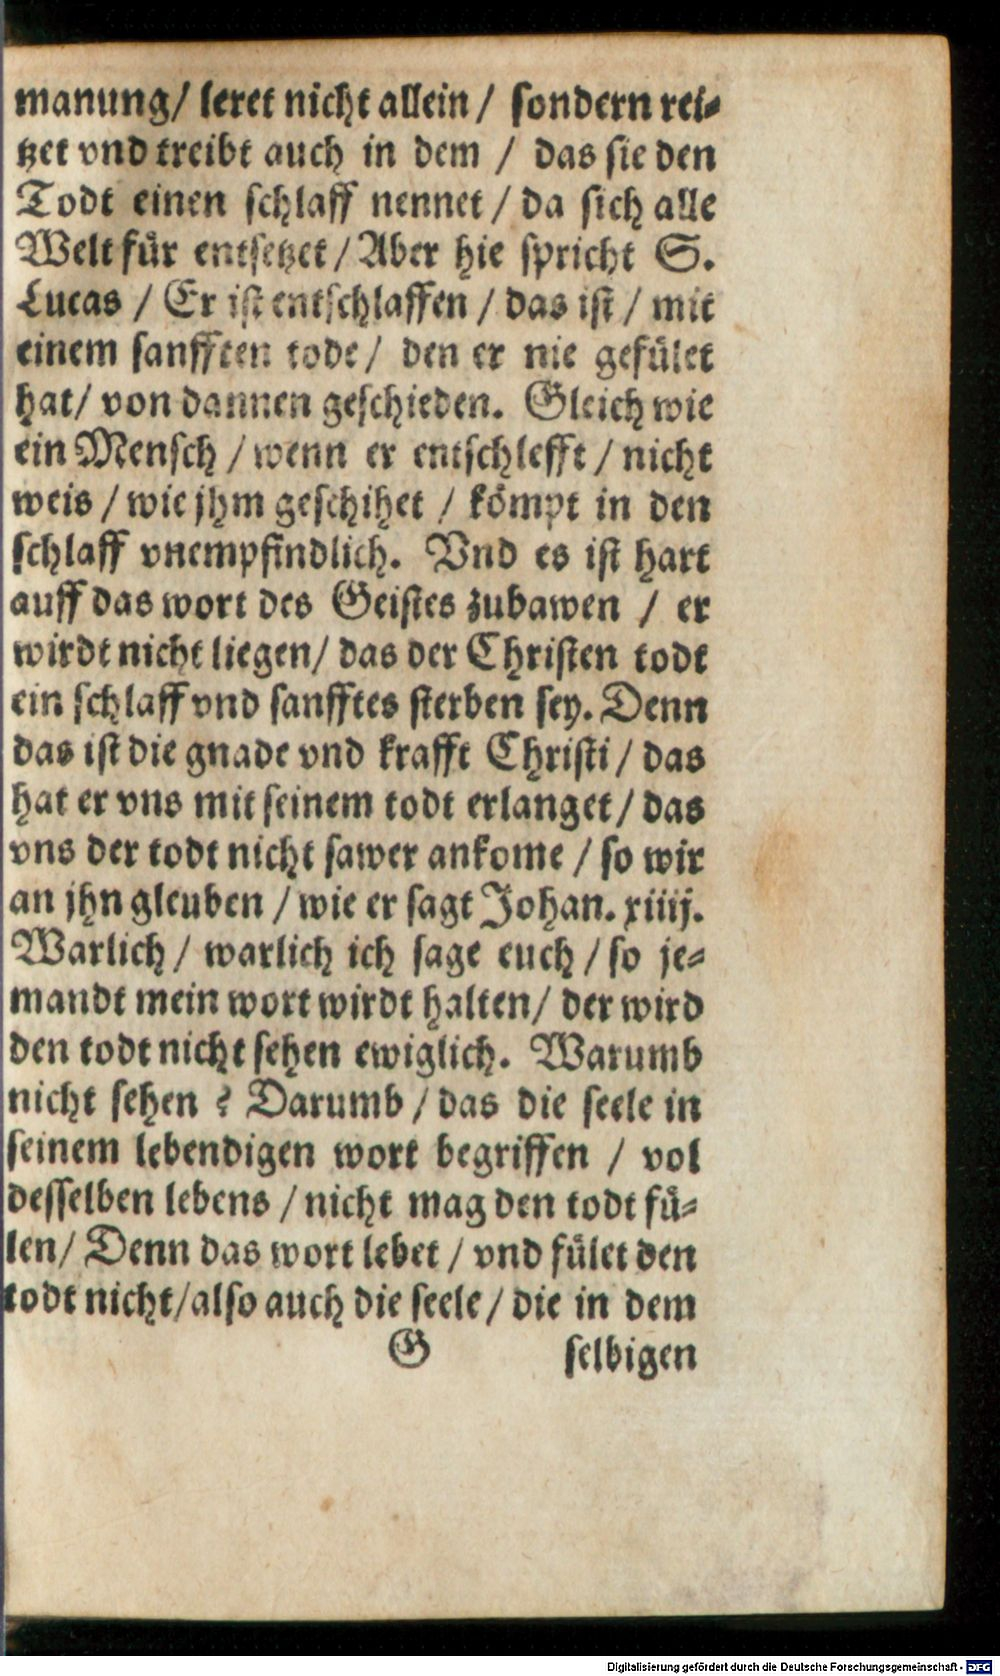 manung/ leret nicht allein / sondern rei-
tzet vnd treibt auch in dem / das sie den
Todt einen schlaff nennet / da sich alle
Welt für entsetzet / Aber hie spricht S.
Lucas / Er ist entschlaffen / das ist / mit
einem sanfften tode / den er nie gefület
hat / von dannen geschieden. Gleich wie
ein Mensch / wenn er entschlefft / nicht
weis / wie jhm geschihet / kömpt in den
schlaff vnempfindlich. Vnd es ist hart
auff das wort des Geistes zubawen / er
wirdt nicht liegen / das der Christen todt
ein schlaff vnd sanfftes sterben sey. Denn
das ist die gnade vnd krafft Christi / das
hat er vns mit seinem todt erlanget / das
vns der todt nicht sawer ankome / so wir
an jhn gleuben / wie er sagt Johan. xiiij.
Warlich / warlich ich sage euch / so je-
mandt mein wort wirdt halten / der wird
den todt nicht sehen ewiglich. Warumb
nicht sehen ? Darumb / das die seele in
seinem lebendigen wort begriffen / vol
desselben lebens / nicht mag den todt fü-
len / Denn das wort lebet / vnd fület den
todt nicht / also auch die seele / die in dem
G selbigen
Digitalisierung gefördert durch die Deutsche Forschungsgemeinschaft - DFG